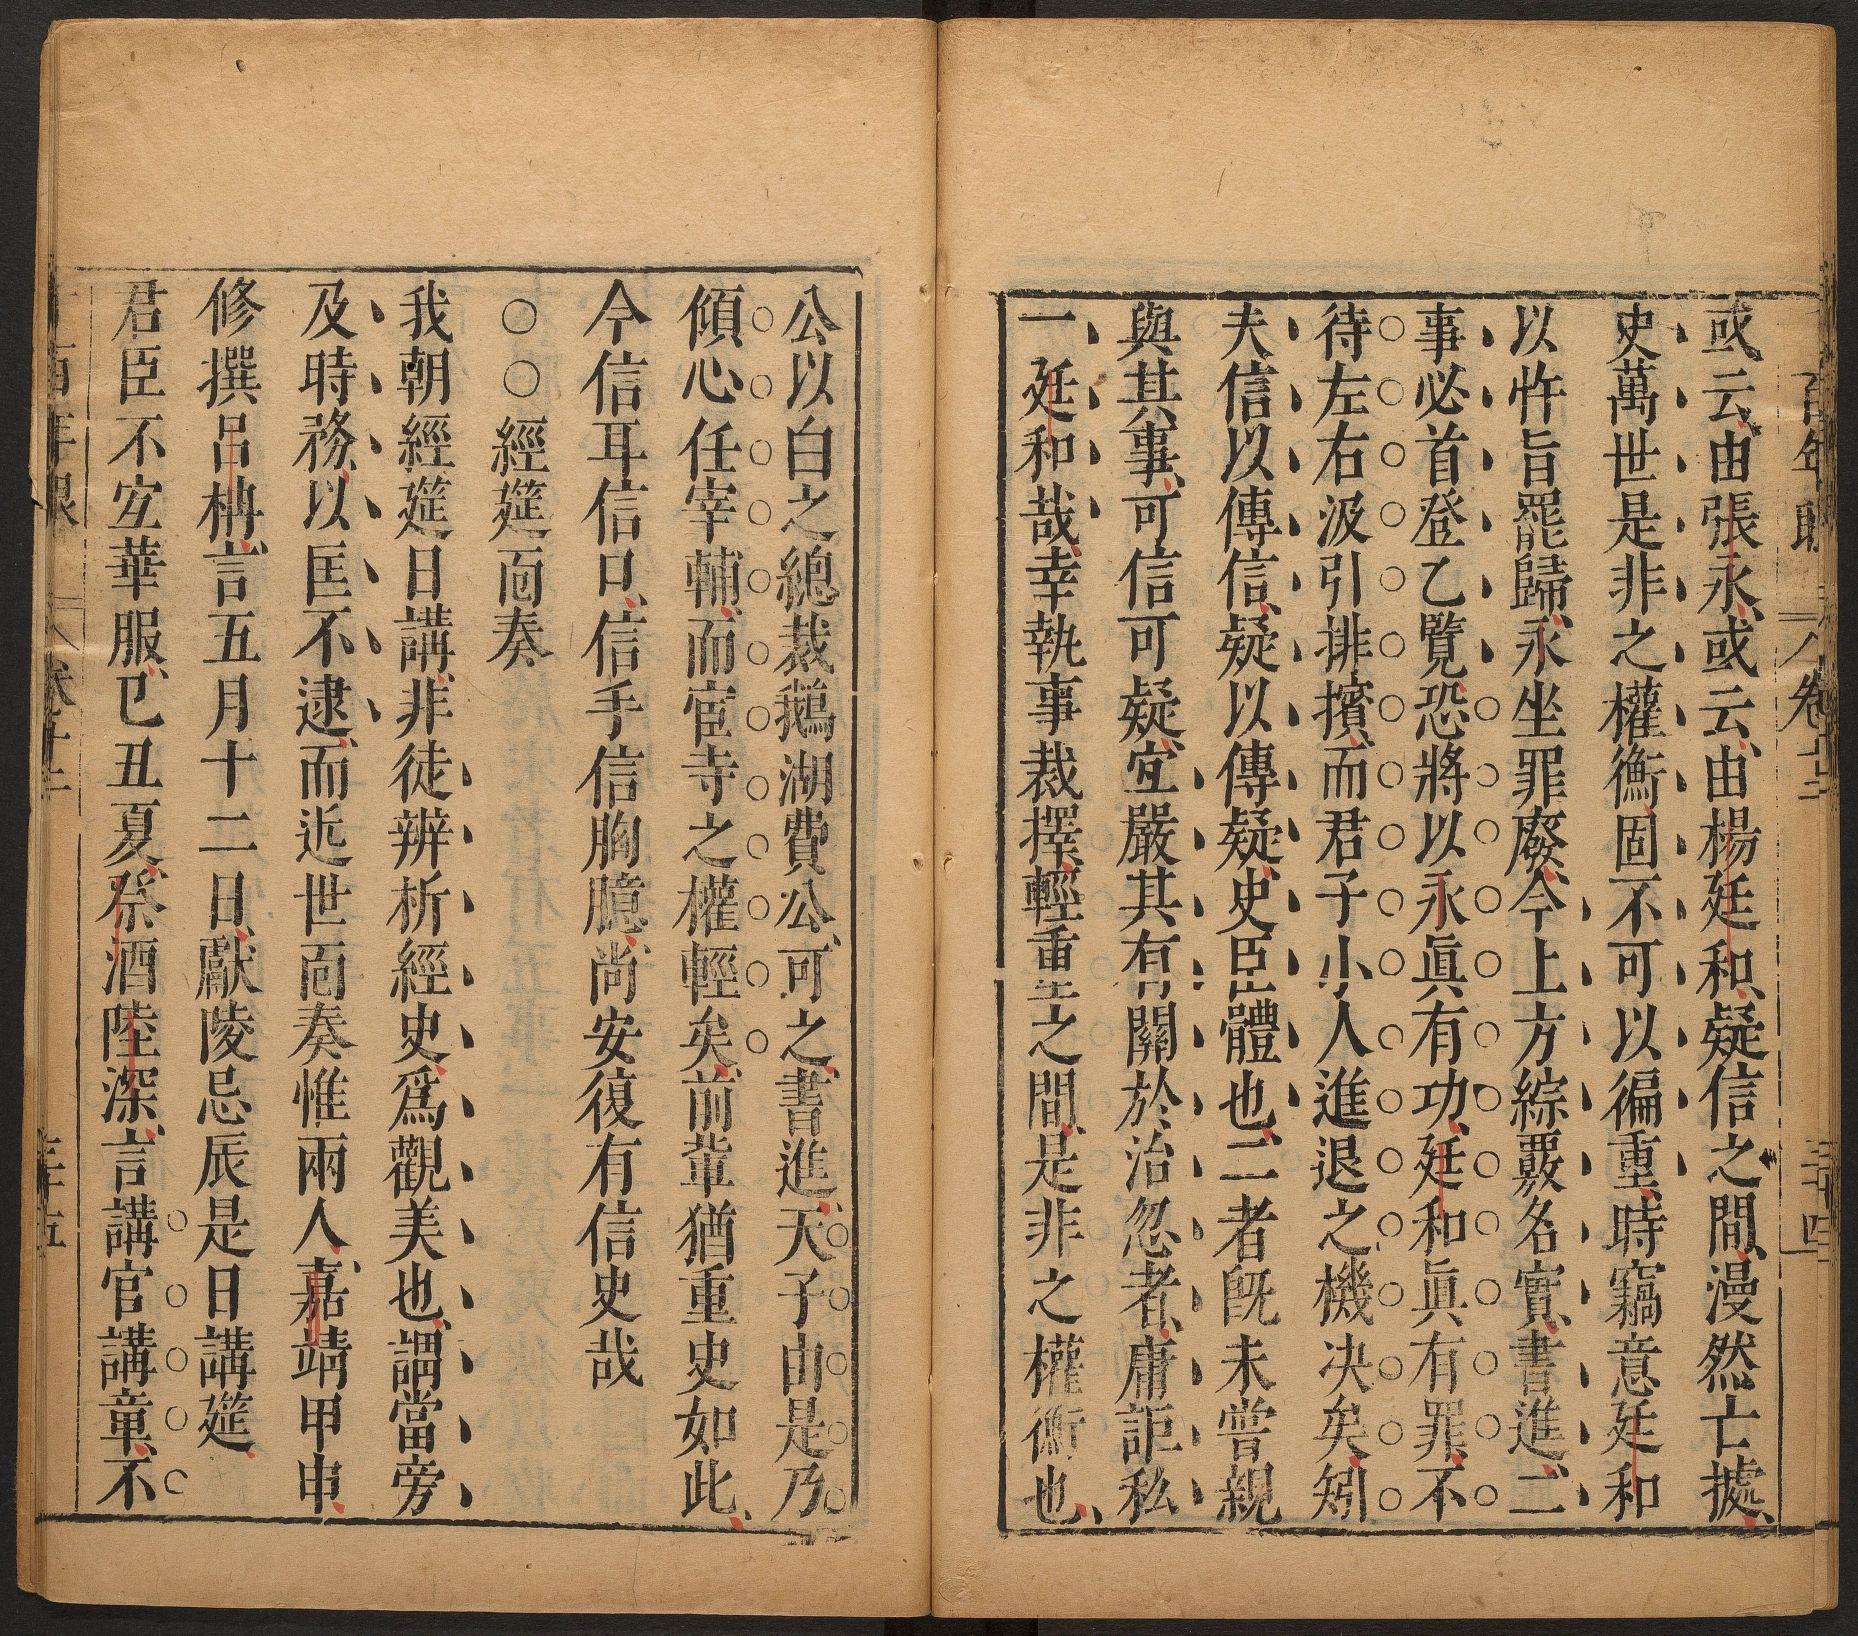 百年 卷十二 三十四
或云由張永或云由楊廷和疑信之間漫然亡據
史萬世是非之權衡固不可以徧重時竊意廷和
以忤旨罷歸永坐罪廢今上方綜覈名實書進二
事必首登乙覽恐將以永眞有功廷和眞有罪不
待左右汲引排擯而君子小人進退之機决矣矧
夫信以傳信疑以傳疑史臣體也二者旣未嘗親
與其事可信可疑宜嚴其有關於治忽者庸詎私
一廷和哉幸執事裁擇輕重之間是非之權衡也
公以白之總裁鵝湖費公可之書進天子由是乃
傾心任宰輔而宦寺之權輕矣前輩猶重史如此
今信耳信口信手信胸臆尚安復有信史哉
○○經筵面奏
我朝經筵日講非徒辨析經史爲觀美也謂當旁
及時務以匡不逮而近世面奏惟兩人嘉靖甲申
修撰呂柟言五月十二日獻陵忌辰是日講筵
君臣不宜華服已丑夏祭酒陸深言講官講章不
卷十二 三十五